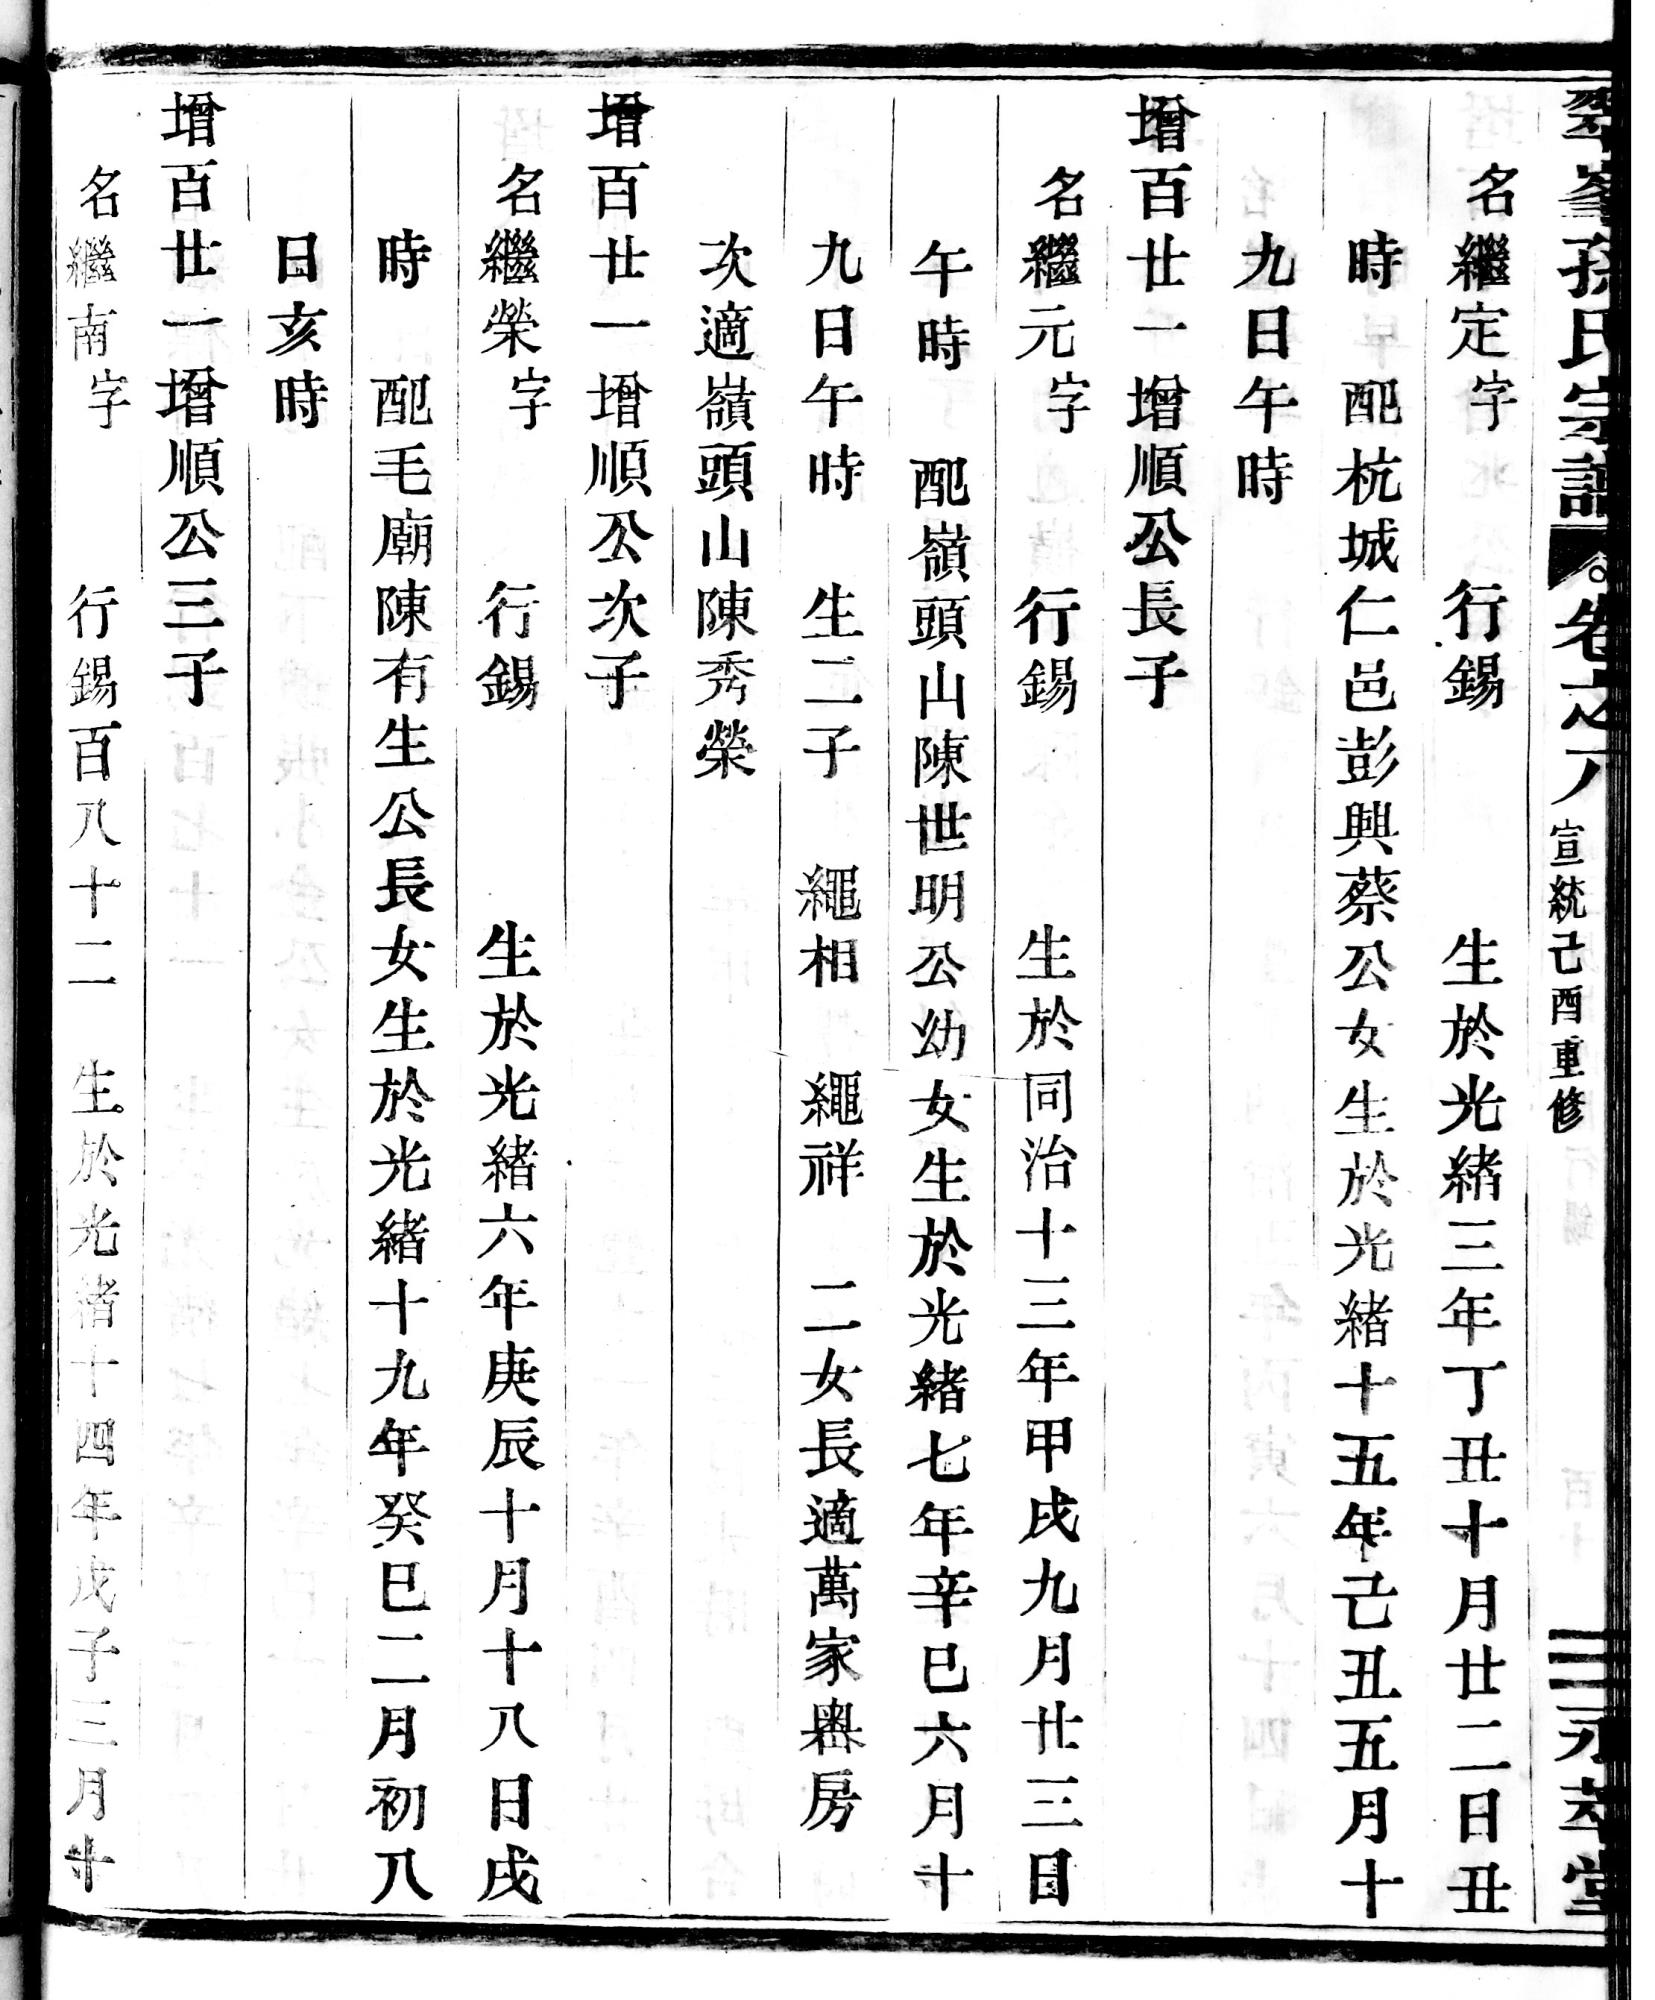 翠峯孫氏宗譜 卷之八 宣統己酉重修 永萃堂
名繼定字 行錫 生於光緒三年丁丑十月廿二日丑
時 配杭城仁邑彭興蔡公女生於光緒十五年己丑五月十
九日午時
增百廿一增順公長子
名繼元字 行錫 生於同治十三年甲戌九月廿三日
午時 配嶺頭山陳世明公幼女生於光緒七年辛巳六月十
九日午時 生二子 繩相 繩祥 二女長適萬家嶴房
次適嶺頭山陳秀榮
增百廿一增順公次子
名繼榮字 行錫 生於光緒六年庚辰十月十八日戌
時 配毛廟陳有生公長女生於光緒十九年癸巳二月初八
日亥時
增百廿一增順公三子
名繼南字 行錫百八十二 生於光緒十四年戊子三月廿